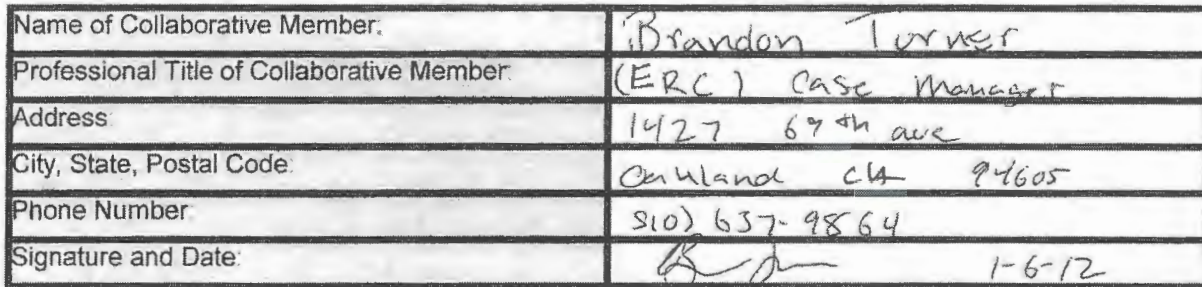 Name of Collaborative Member: Brandon Turner
Professional Title of Collaborative Member: (ERC) Case Manager
Address: 1427 69th ave
City, State, Postal Code: Oakland CA 94605
Phone Number: 510) 637-9864
Signature and Date: 1-6-12